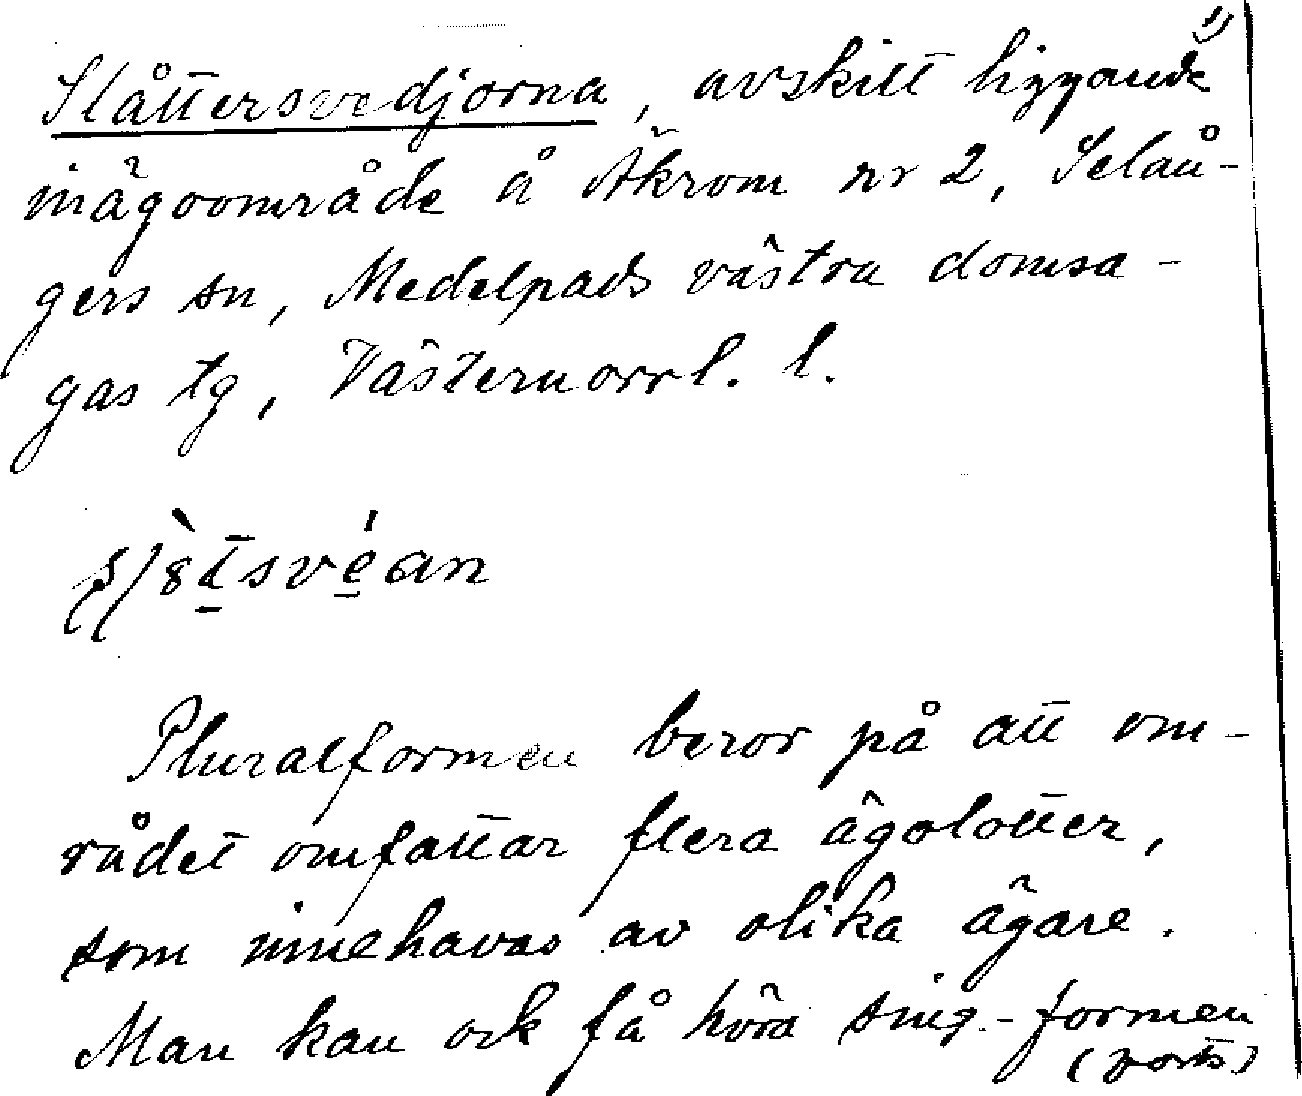 Slåttersvedjorna, avskilt liggande 1)
inägoområde å Åkrom nr 2, Selån-
gers sn, Medelpads västra domsa-
gas tg, Västernorrl. l.
Pluralformen beror på att om-
rådet omfattar flera ägolotter,
som innehavas av olika ägare.
Man kan ock få höra sing.-formen
(forts)